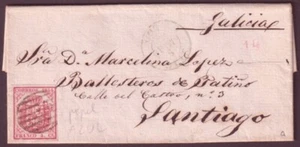 Galicia
Sra Da Marcelina Lopez
Ballesteros de Patiño
Calle del Castro, n.º 3
Santiago